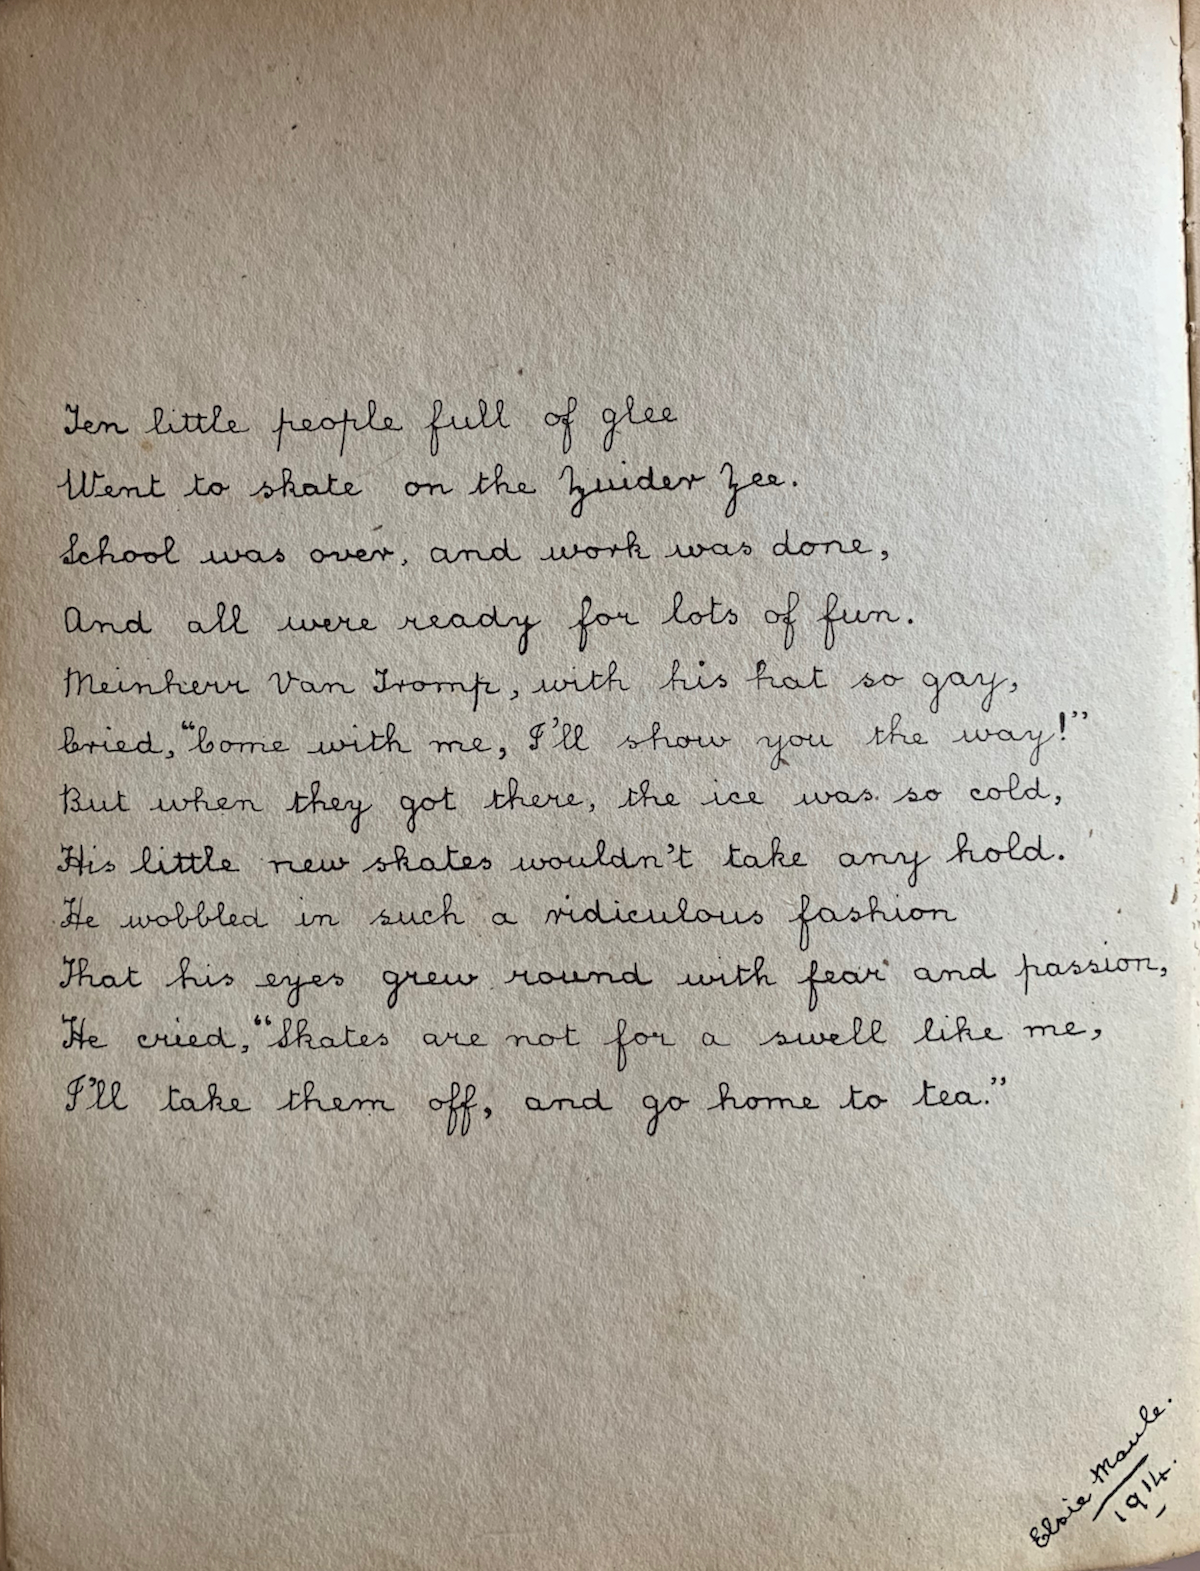 Ten little people full of glee
Went to skate on the Zuider Zee.
School was over, and work was done,
And all were ready for lots of fun.
Meinherr Van Tromp, with his hat so gay,
Cried, “Come with me, I’ll show you the way!”
But when they got there, the ice was so cold,
His little new skates wouldn’t take any hold.
He wobbled in such a ridiculous fashion
That his eyes grew round with fear and passion,
He cried, “Skates are not for a swell like me,
I’ll take them off, and go home to tea.”
Elsie Maule.
1914.